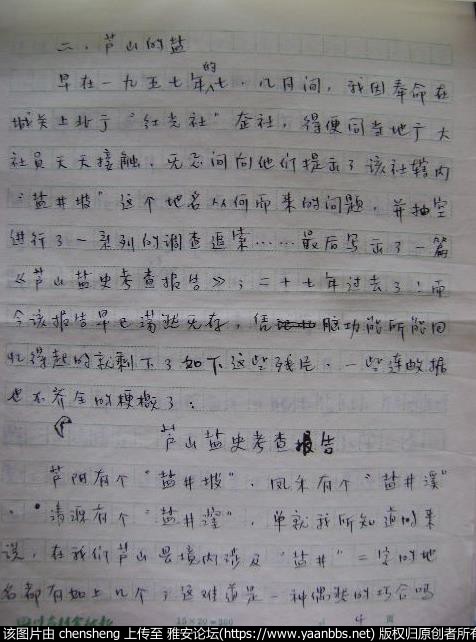 二、芦山的盐
早在一九五七年的七、八月间，我因奉命在
城关上北于"红光社"整社，得便同当地广大
社员天天接触，无意间向他们提出了该社辖内
"盐井坡"这个地名从何而来的问题，并抽空
进行了一系列的调查追索……最后写出了一篇
《芦山盐史考查报告》；二十七年过去了！而
今该报告早已荡然无存，借脑功能所能回
忆得起的就剩下了如下这些残片，一些连数据
也不齐全的梗概了：
芦山盐史考查报告
芦阳有个"盐井坡"，凤禾有个"盐井溪"
，清源有个"盐井"，单就我所知道的来
说，在我们芦山县境内涉及"盐井"二字的地
名都有如上几个了这难道是一种偶然的巧合吗
15×20=300
4
该图片由 chensheng 上传至 雅安论坛(https://www.yaanbbs.net) 版权归原创者所